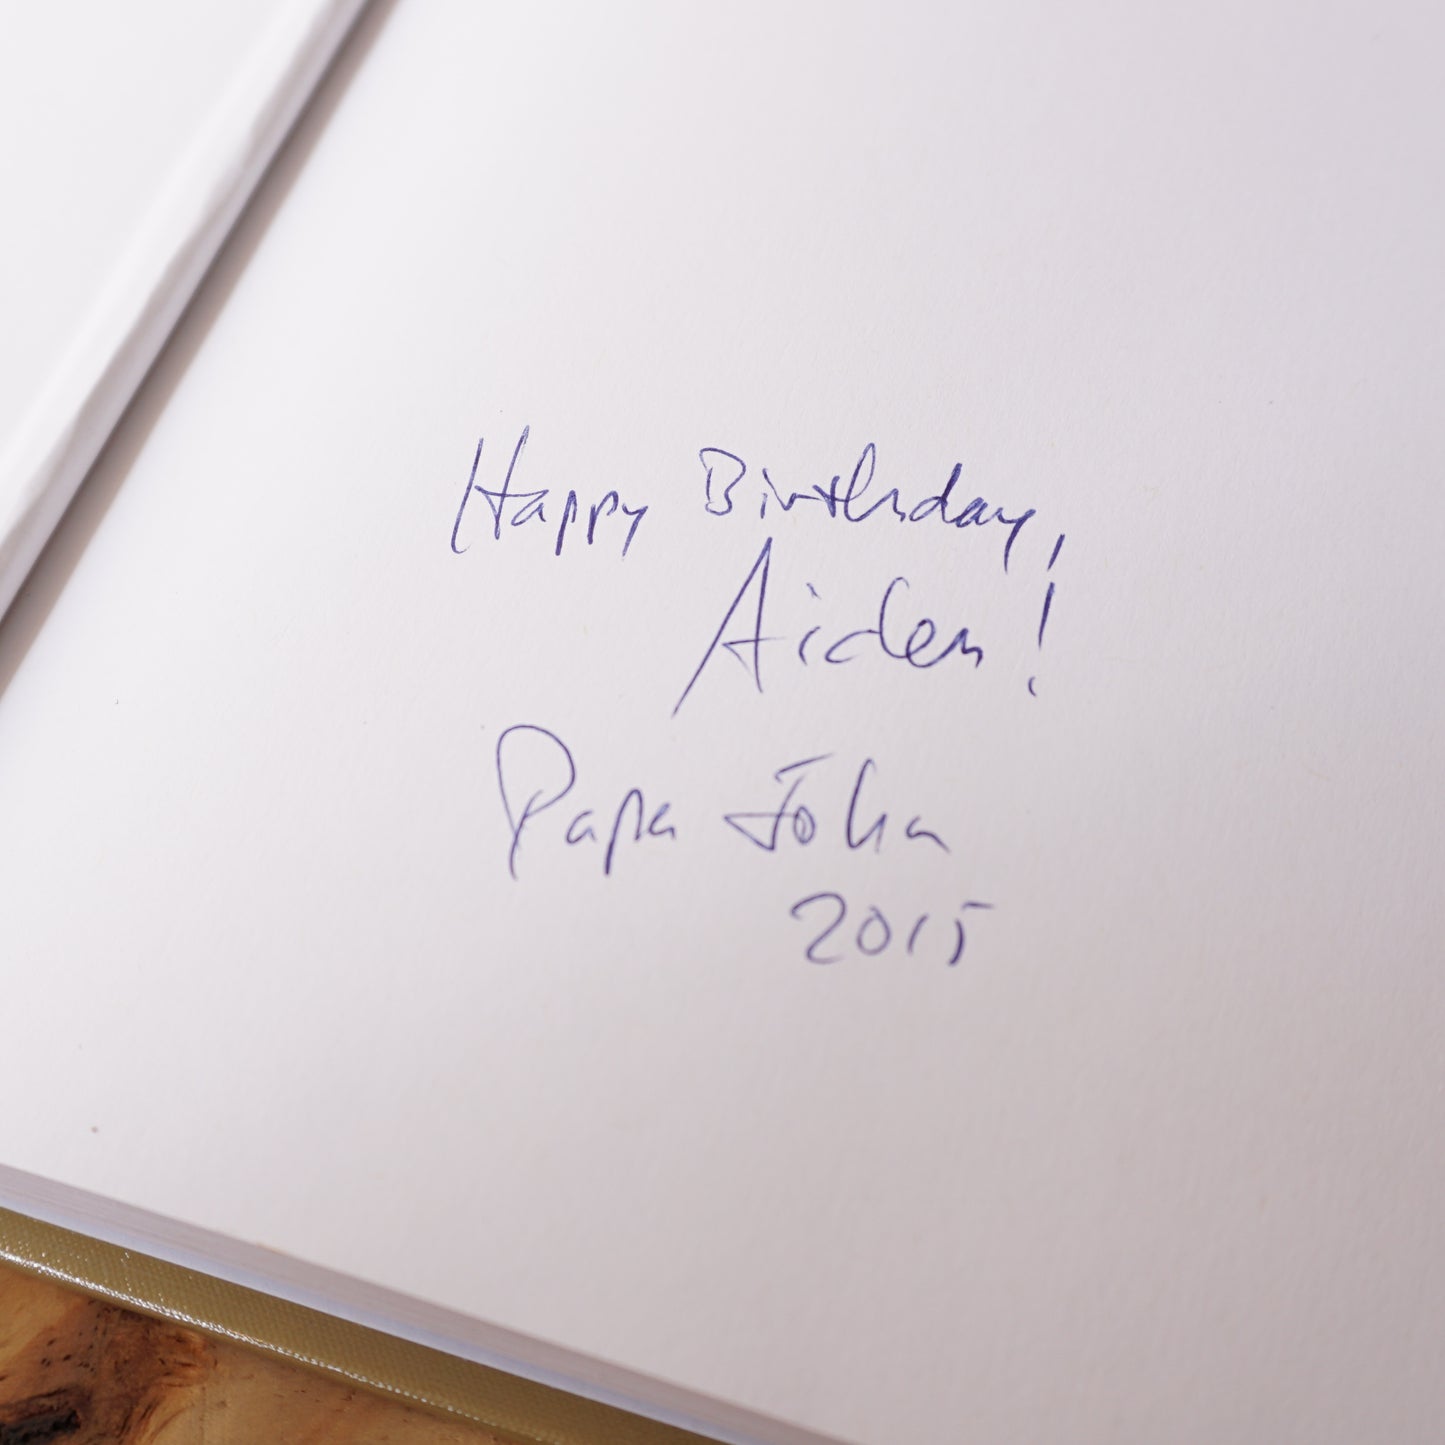 Happy Birthday,
Aiden!
Papa John
2015